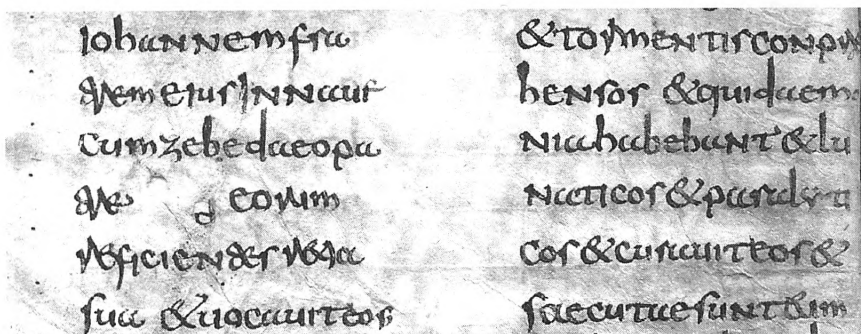 Iohannem fra
trem eius In naue
cum zebedaeo pa
tre eorum
reficientes retia
sua & uocauit eos
& tormentis conpre
hensos & qui daemo
nia habebant & lu
naticos & paralyti
cos & curauit eos &
saecutae sunt